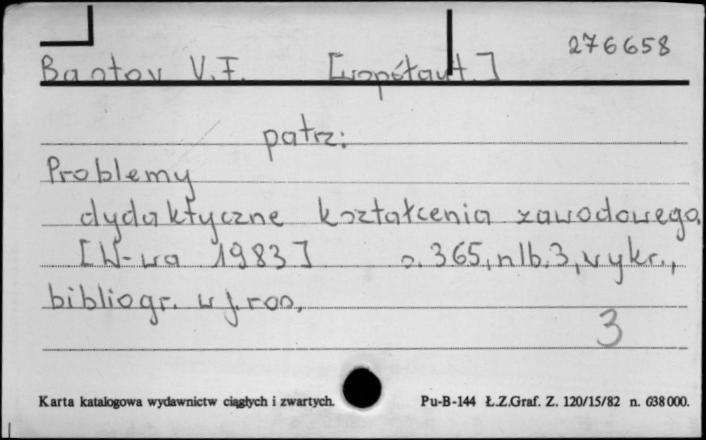 276658
Bantov V.F. [współaut.]
patrz:
Problemy
dydaktyczne kształcenia zawodowego.
[W-wa 1983] s. 365, nlb. 3, wykr.,
bibliogr. w j. ros.
3
Karta katalogowa wydawnictw ciągłych i zwartych. Pu-B-144 Ł.Z.Graf. Z. 120/15/82 n. 638 000.